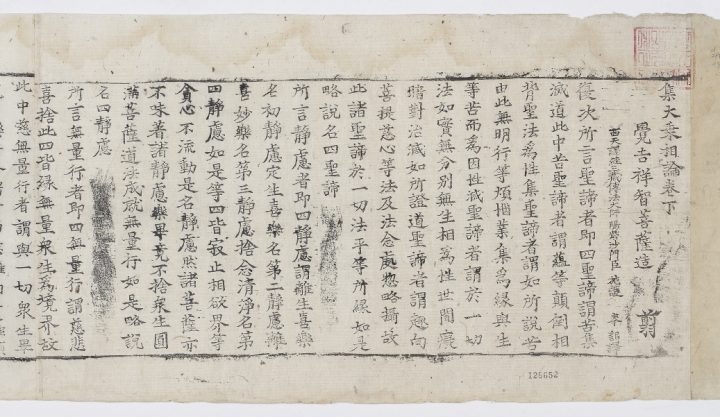 集大乘相論卷下 翦
覺吉祥智菩薩造
西天譯經三藏傳法大師賜紫沙門臣施護 奉詔譯
復次所言聖諦者即四聖諦謂苦集
滅道此中苦聖諦者謂蘊等顛倒相
背聖法爲性集聖諦者謂如所說苦
由此無明行等煩惱業集爲緣與生
等苦而爲因性滅聖諦者謂於一切
法如實無分別無生相爲性世間癡
暗對治滅如所證道聖諦者謂趣向
菩提慈心等法及法念處惣略攝故
此諸聖諦於一切法平等所緣如是
略說名四聖諦
所言靜慮者即四靜慮謂離生喜樂
名初靜慮定生喜樂名第二靜慮離
喜妙樂名第三靜慮捨念清淨名第
四靜慮如是等四皆寂止相欲界等
貪心不流動是名靜慮然諸菩薩亦
不味著諸靜慮樂畢竟不捨衆生圓
滿菩薩道法成就無量行如是略說
名四靜慮
所言無量行者即四無量行謂慈悲
喜捨此四皆緣無量衆生爲境界故
此中慈無量行者謂與一切衆生畢
125652